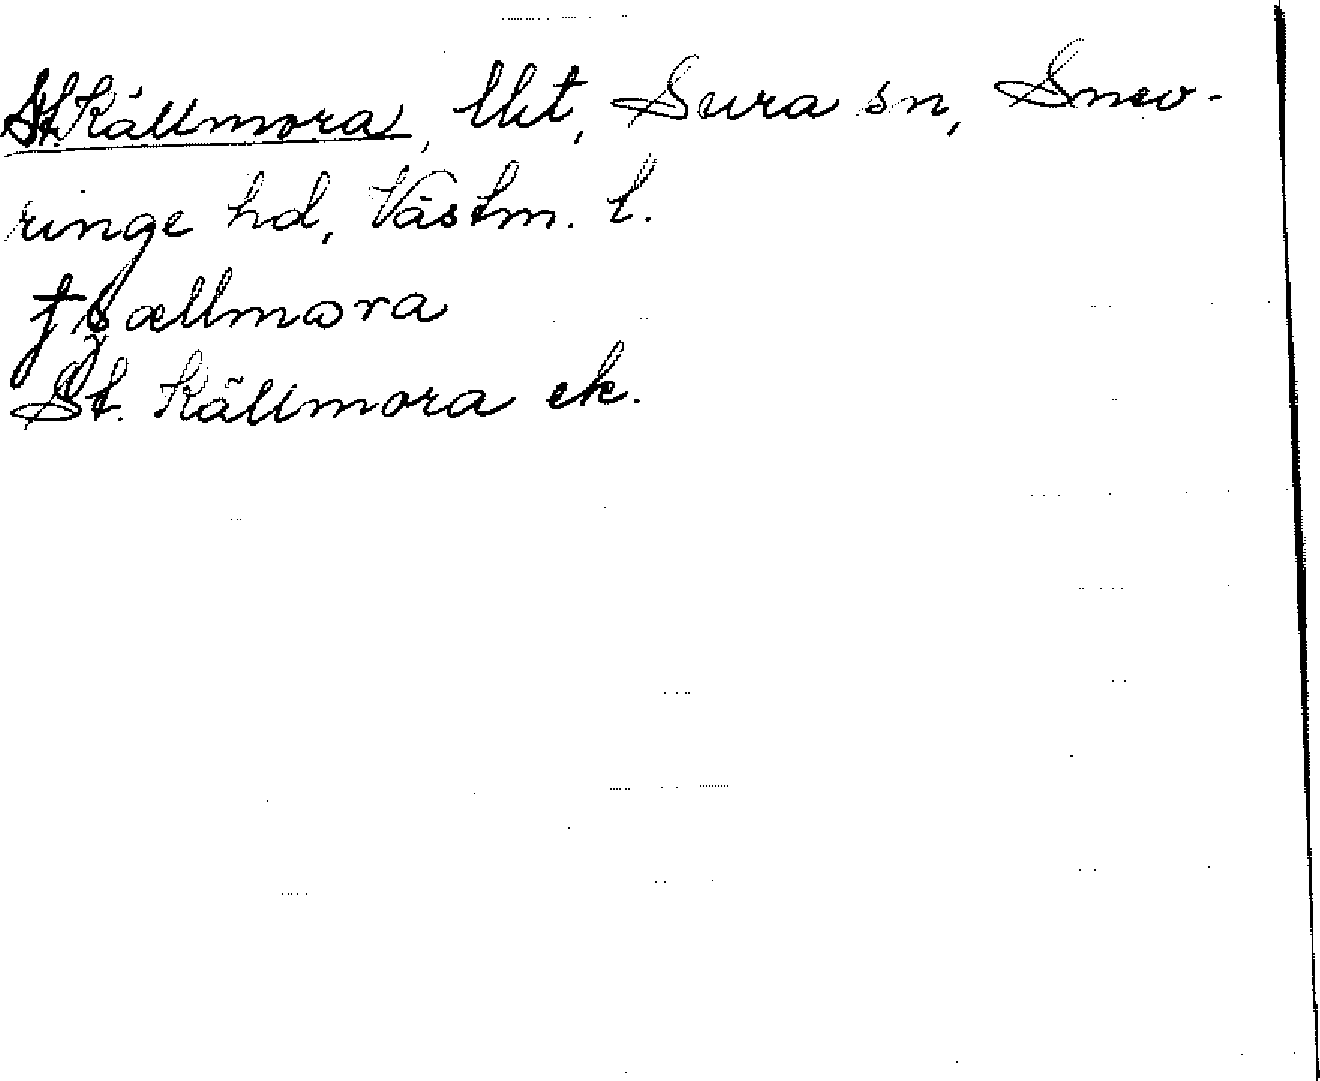 St. Källmora, lht, Sura sn, Snev-
ringe hd, Västm. l.
ællmora
St. Källmora ek.